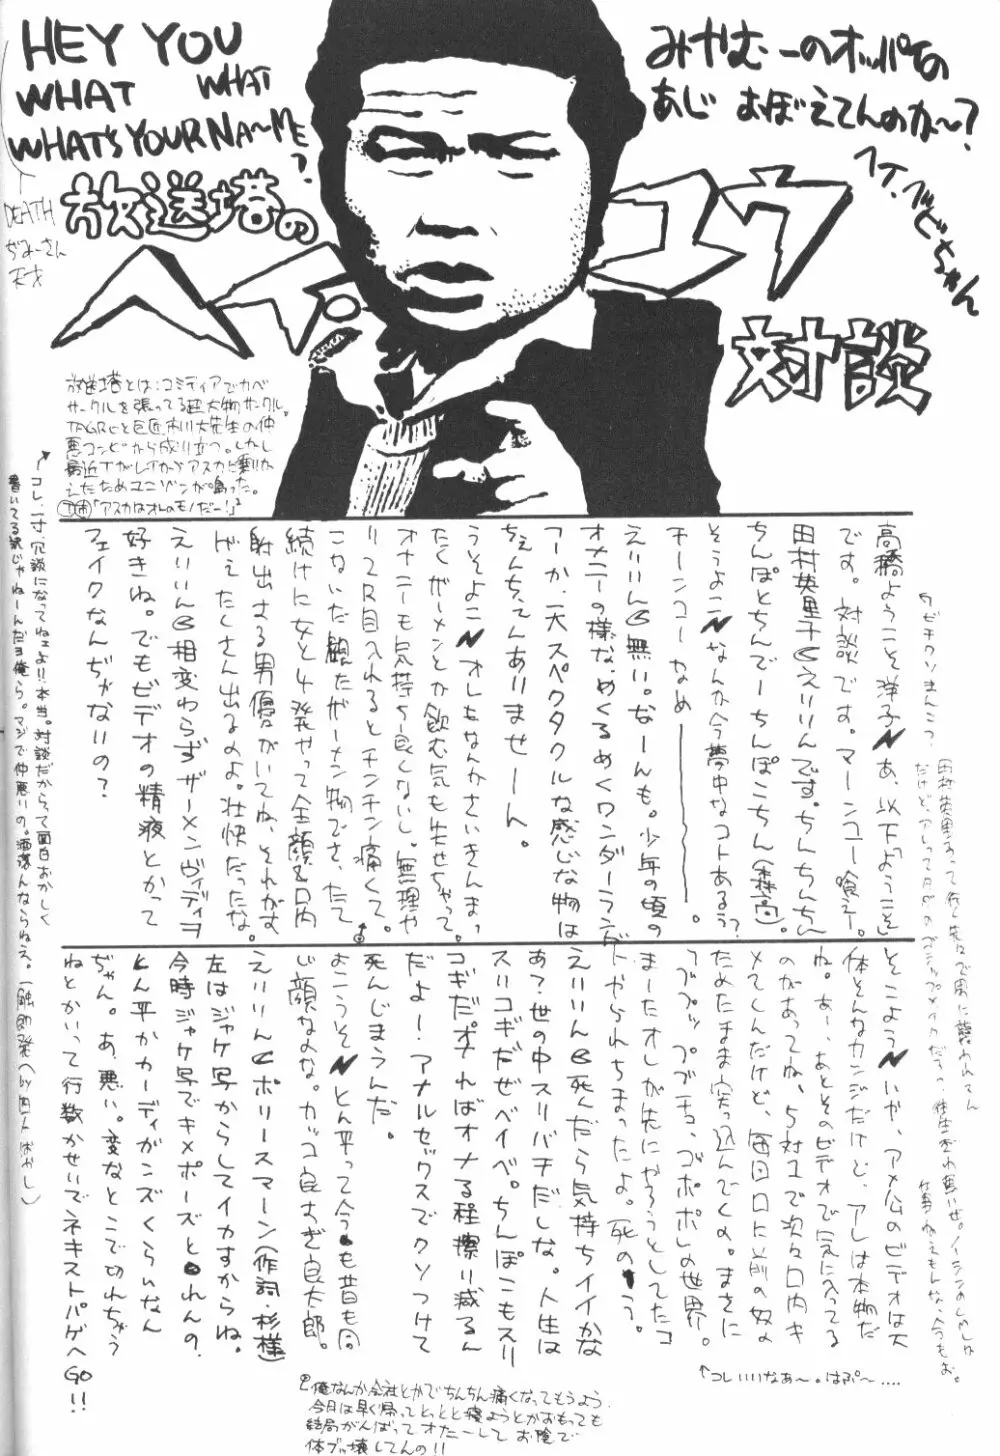 HEY YOU
WHAT WHAT
WHAT'S YOUR NA〜ME?
DEATH
ぢみーさん
天才
みやむーのオッパイの
あじ おぼえてんのか〜?
放送塔の
ヘイ・ユウ
対談
放送塔とは:コミティアでカベ
サークルを張ってる超大物サークル。
と巨匠市川大先生の仲
悪コンビから成り立つ。しかし
最近TがLTからアスカに乗りか
えたためユニゾンが鳴った。
「アスカはオレのモノだー!」
高橋ようこそ洋子 あ、以下「ようこそ」
です。対談です。マーンコー喰え。
田村英里子 えりりんです。ちんちんちん
ちんぽとちんでーちんぽこちん(森高)。
そうよこ なんか今夢中なコトあるぅ?
チーンコーなめ―――――。
えりりん 無い。なーんも。少年の頃の
オナニーの様なめくるめくワンダーランド
アーか、一大スペクタクルな感じな物は
ちぇんちぇんありませーん。
うそよこ オレもなんかさいきんまっ
たくザーメンとか飲む気も失せちゃって。
オナニーも気持ち良くないし。無理や
り2尺目入れるとチンチン痛くて。
こないだ観たザーメン物でさ、たて
続けに女と4発やって全顔&口内
射出する男優がいてね、それがす
げぇたくさん出るのよ。壮快だったな。
えりりん 相変わらずザーメンヴィディヲ
好きね。でもビデオの精液とかって
フェイクなんぢゃないの?
そこよう いや、アメ公のビデオは大
体そんなカンジだけど、アレは本物だ
ね。あー、あとそのビデオで気に入ってる
のがあってね、5対1で次々口内キ
メてくんだけど、毎回口に以前の奴の
ためたまま突っ込んでくの。まさに
ププププッ ププチョ、ゴポポポの世界。
まーたオレが先にやろうとしてたコ
トやられちまったよ。死のう。
えりりん 死んだら気持ちイイかな
あ?世の中スリバチだしな。人生は
スリコギだぜベイベ。ちんぽこもスリ
コギだ。オナればオナる程擦り減るん
だよー。アナルセックスでクソつけて
死んじまうんだ。
よこうそ とん平って今も昔も同
じ顔なのな。カッコ良すぎ良太郎。
えりりん ポリースマーン(作詞・杉様)
左はジャケ写からしてイカすからね。
今時ジャケ写でキメポーズとれんの、
とん平かカーディガンズくらいなん
ぢゃん。あ、悪い。変なとこで切れちゃう
ねとかいって行数かせいでネキストパゲへGO!!
コレ、一寸、冗談になってねェよ!!本当。対談だからって面白おかしく
書いてる訳じゃねーんだヨ俺ら。マジで仲悪いの。洒落んならねえ。
↑コレいいなあ〜。はぷ〜‥‥
俺なんか会社とかでちんちん痛くなってもうよう
今日は早く帰ってとっとと寝ようとかおもっても
結局がんばってオナーして お陰で
体ブッ壊してんの!!